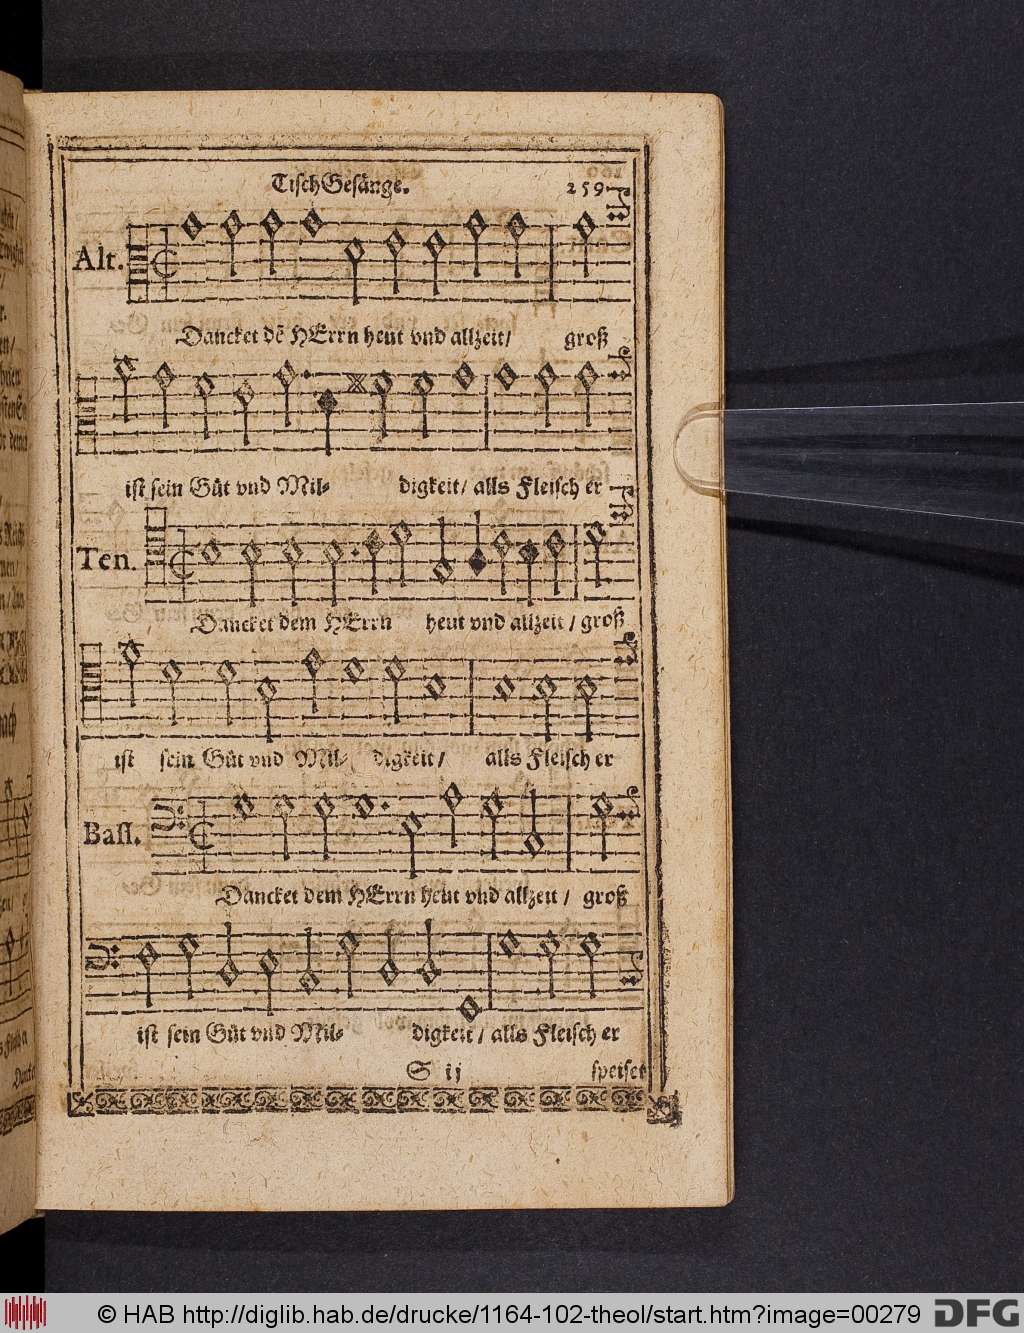 TischGesänge. 259
Alt.
Dancket dē HErrn heut vnd allzeit/ groß
ist sein Güt vnd Mil- digkeit/ alls Fleisch er
Ten.
Dancket dem HErrn heut vnd allzeit / groß
ist sein Güt vnd Mil- digkeit / alls Fleisch er
Bass.
Dancket dem HErrn heut vnd allzeit / groß
ist sein Güt vnd Mil- digkeit / alls Fleisch er
S ij speiset
© HAB http://diglib.hab.de/drucke/1164-102-theol/start.htm?image=00279 DFG